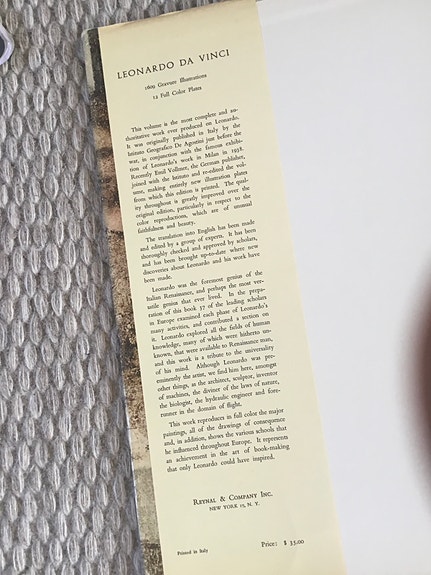 LEONARDO DA VINCI
1609 Gravure Illustrations
12 Full Color Plates
This volume is the most complete and au-
thoritative work ever produced on Leonardo.
It was originally published in Italy by the
Istituto Geografico De Agostini just before the
war, in conjunction with the famous exhibi-
tion of Leonardo's work in Milan in 1938.
Recently Emil Vollmer, the German publisher,
joined with the Istituto and re-edited the vol-
ume, making entirely new illustration plates
from which this edition is printed. The qual-
ity throughout is greatly improved over the
original edition, particularly in respect to the
color reproductions, which are of unusual
faithfulness and beauty.
The translation into English has been made
and edited by a group of experts. It has been
thoroughly checked and approved by scholars,
and has been brought up-to-date where new
discoveries about Leonardo and his work have
been made.
Leonardo was the foremost genius of the
Italian Renaissance, and perhaps the most ver-
satile genius that ever lived. In the prepa-
ration of this book 37 of the leading scholars
in Europe examined each phase of Leonardo's
many activities, and contributed a section on
it. Leonardo explored all the fields of human
knowledge, many of which were hitherto un-
known, that were available to Renaissance man,
and this work is a tribute to the universality
of his mind. Although Leonardo was pre-
eminently the artist, we find him here, amongst
other things, as the architect, sculptor, inventor
of machines, the diviner of the laws of nature,
the biologist, the hydraulic engineer and fore-
runner in the domain of flight.
This work reproduces in full color the major
paintings, all of the drawings of consequence
and, in addition, shows the various schools that
he influenced throughout Europe. It represents
an achievement in the art of book-making
that only Leonardo could have inspired.
REYNAL & COMPANY INC.
NEW YORK 15, N. Y.
Printed in Italy
Price: $ 35.00